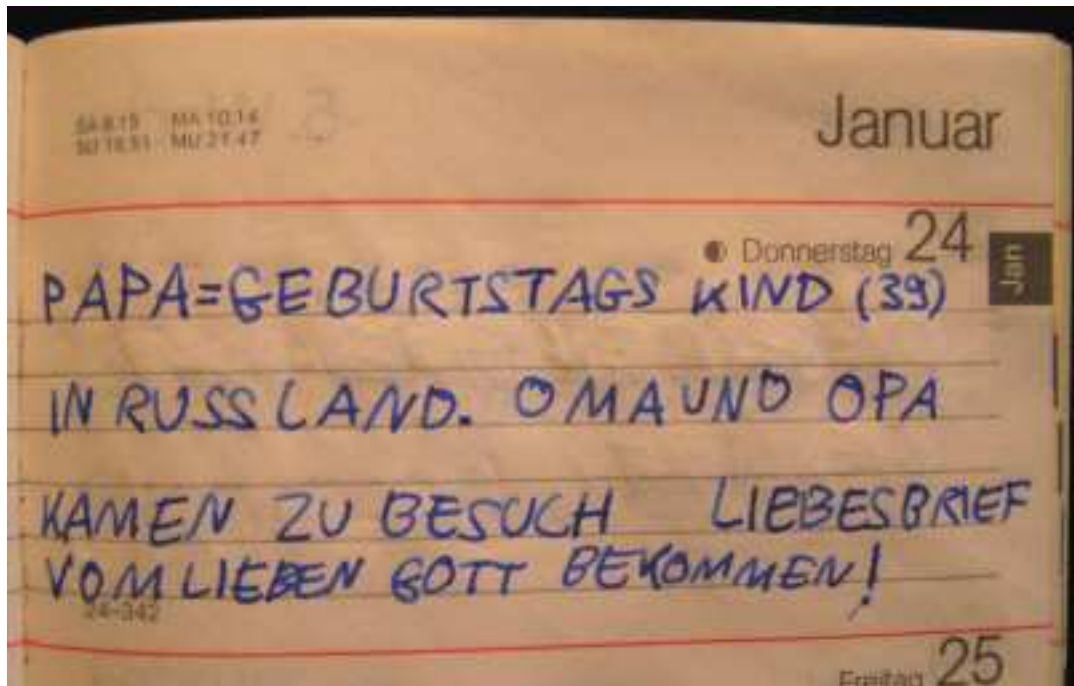 SA 8:15 MA 10:14
SU 16:51 MU 21:47
Januar
Donnerstag 24
Jan
PAPA=GEBURTSTAGS KIND (39)
IN RUSSLAND. OMA UND OPA
KAMEN ZU BESUCH LIEBESBRIEF
VOM LIEBEN GOTT BEKOMMEN!
24-342
Freitag 25